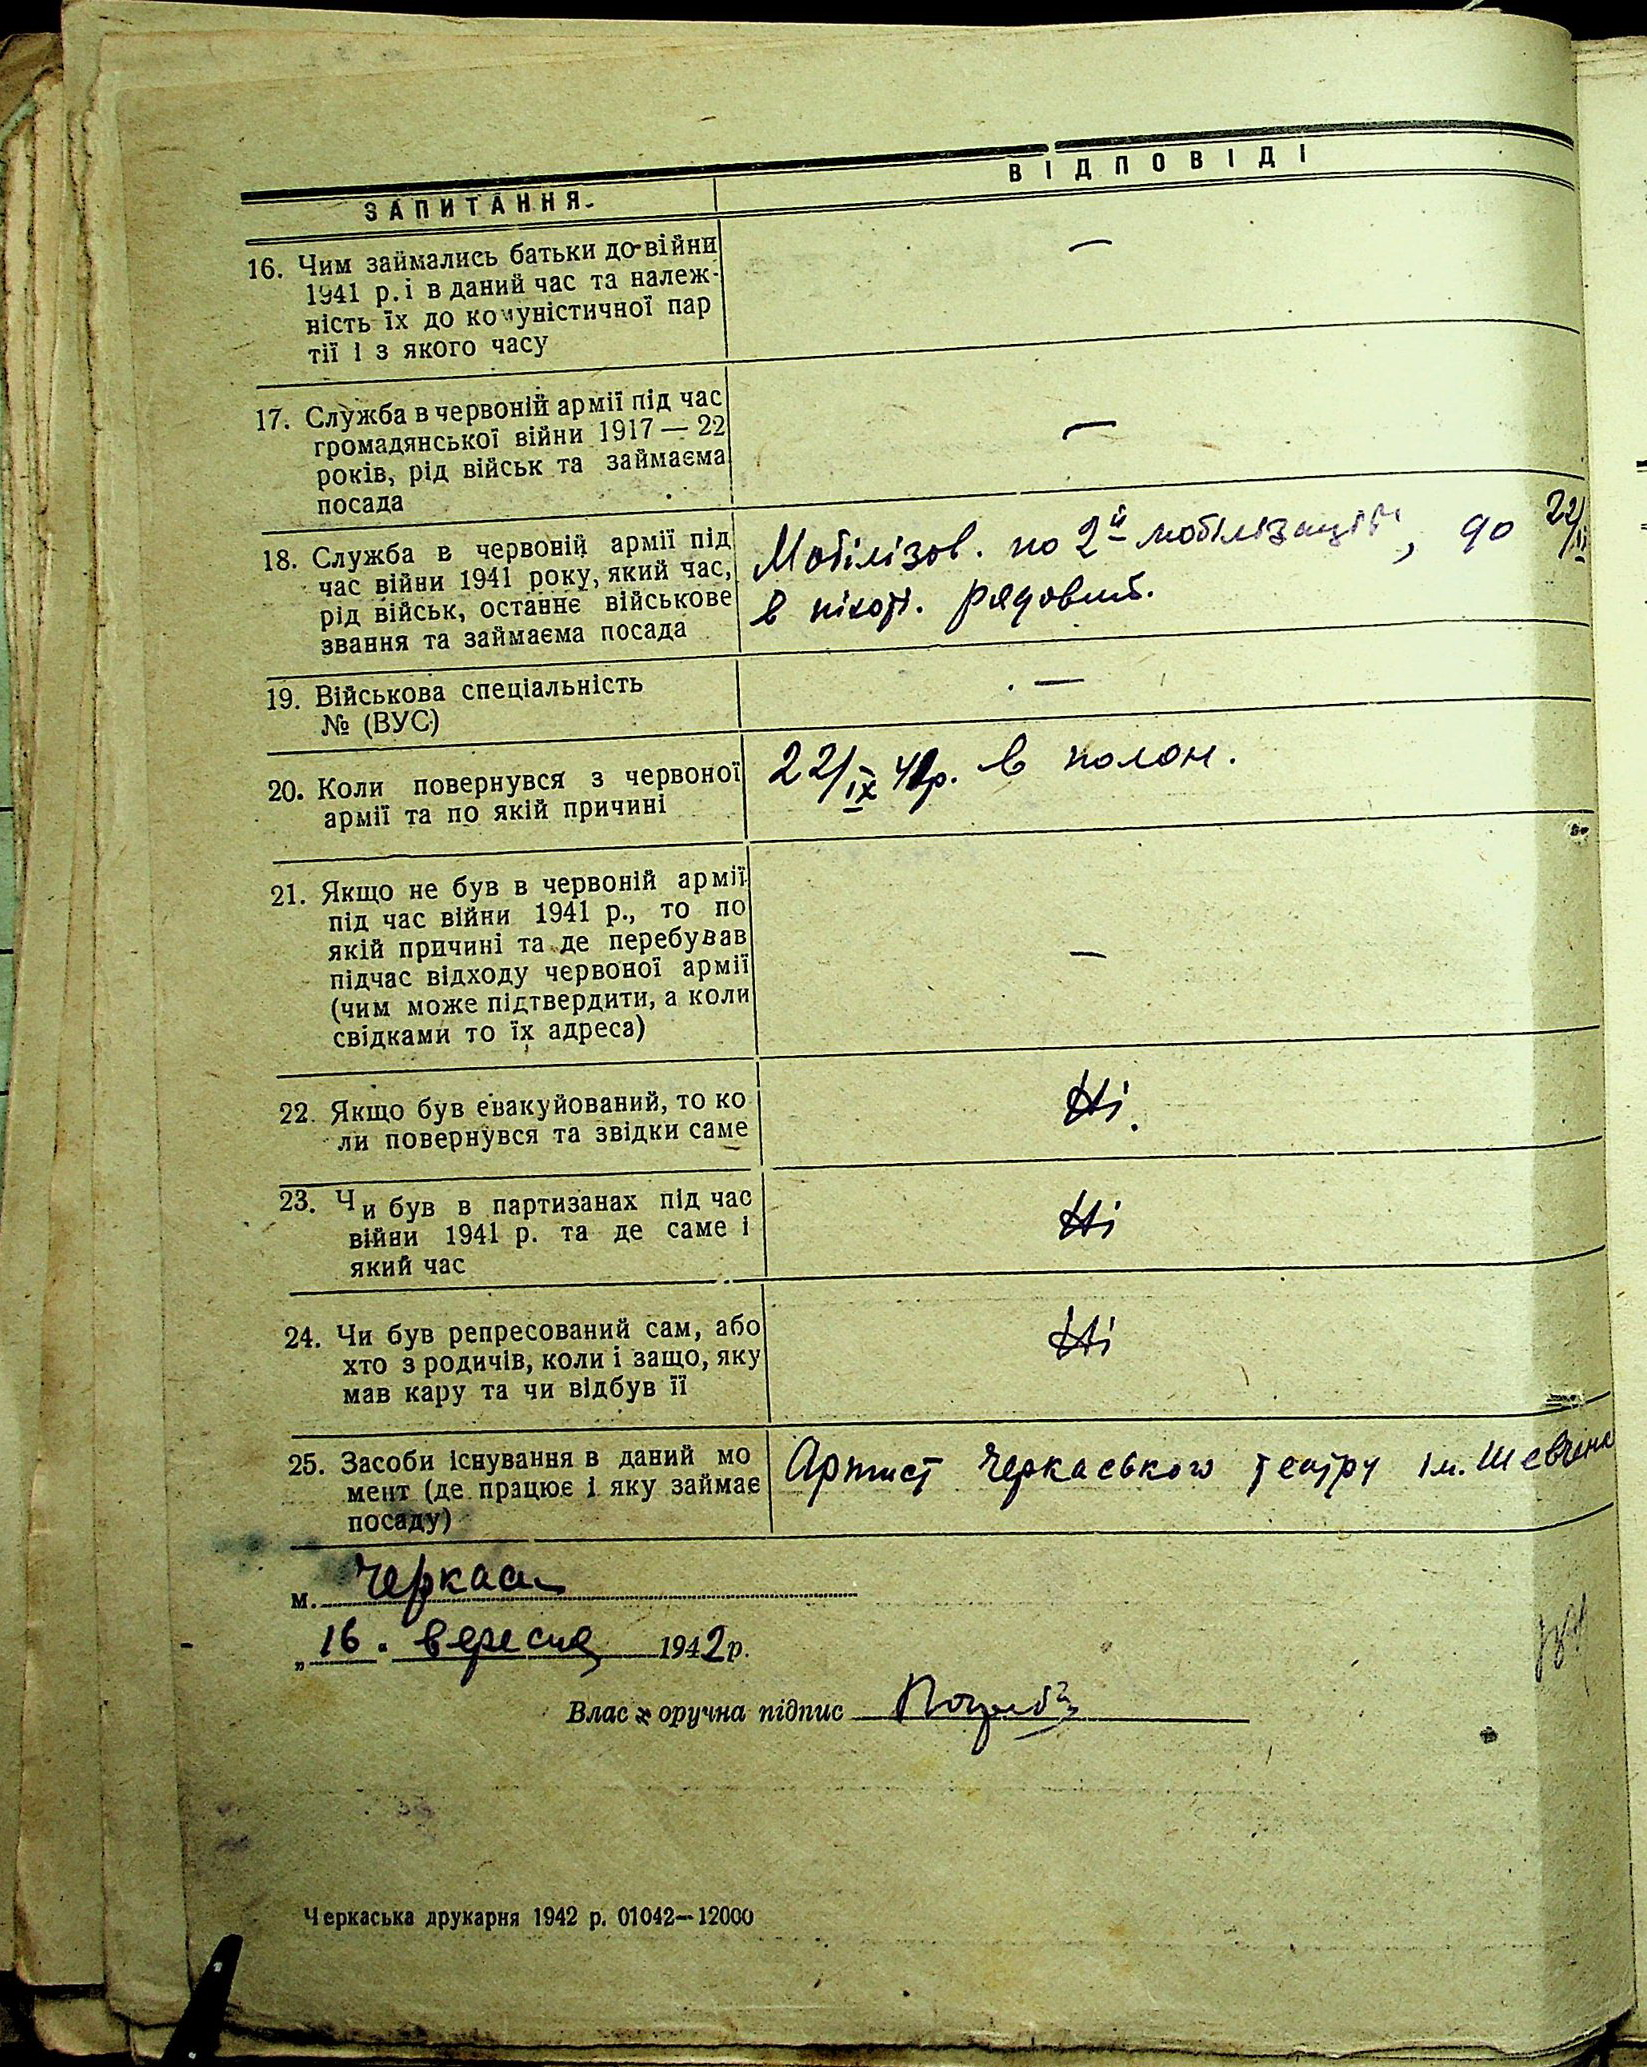 ЗАПИТАННЯ.
ВІДПОВІДІ
16. Чим займались батьки до війни
1941 р. і в даний час та належ-
ність їх до комуністичної пар
тії і з якого часу
—
17. Служба в червоній армії під час
громадянської війни 1917 — 22
років, рід військ та займаєма
посада
—
18. Служба в червоній армії під
час війни 1941 року, який час,
рід військ, останнє військове
звання та займаєма посада
Мобілізов. по 2й мобілізації, до 22/IX
в піхоті. рядовий.
19. Військова спеціальність
№ (ВУС)
—
20. Коли повернувся з червоної
армії та по якій причині
22/IX 41р. в полон.
21. Якщо не був в червоній армії
під час війни 1941 р., то по
якій причині та де перебував
підчас відходу червоної армії
(чим може підтвердити, а коли
свідками то їх адреса)
—
22. Якщо був евакуйований, то ко
ли повернувся та звідки саме
Ні.
23. Чи був в партизанах під час
війни 1941 р. та де саме і
який час
Ні
24. Чи був репресований сам, або
хто з родичів, коли і защо, яку
мав кару та чи відбув її
Ні
25. Засоби існування в даний мо
мент (де працює і яку займає
посаду)
Артист Черкаського театру ім. Шевченк
м. Черкаси
„ 16 " вересня 1942 р.
Влас оручна підпис
Черкаська друкарня 1942 р. 01042—12000